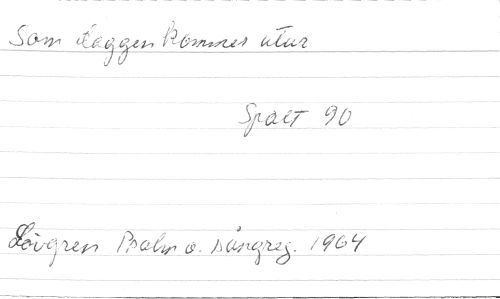 Som daggen kommer utur
Spalt 90
Lövgren Psalm o. sångreg. 1964